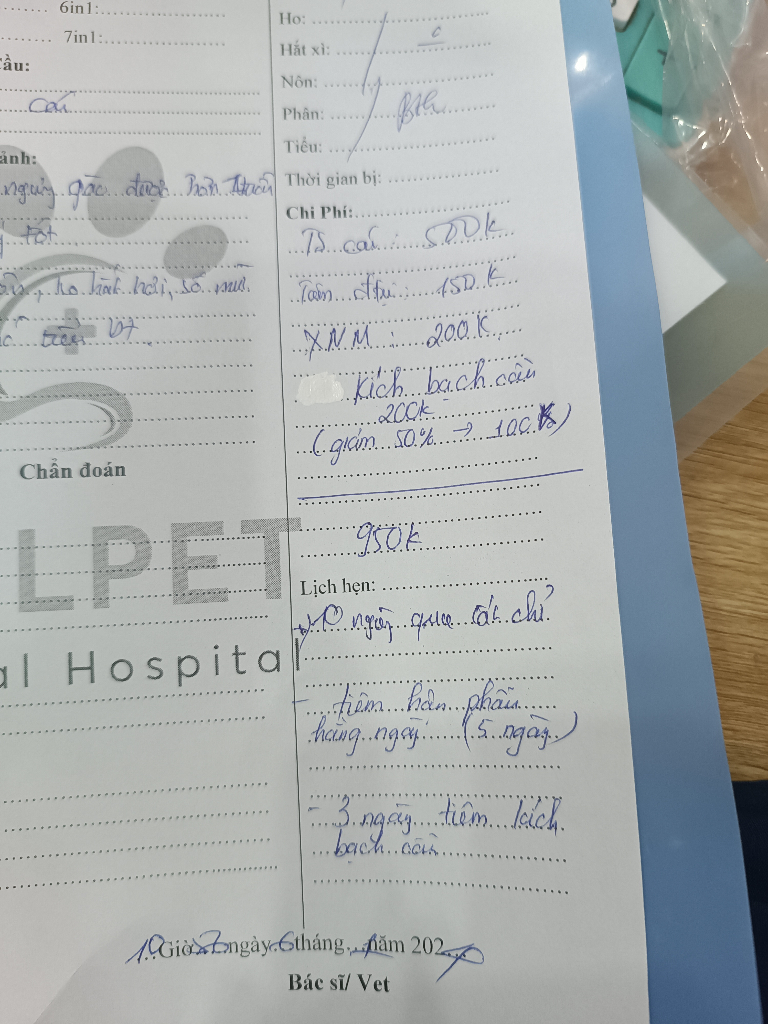 6in1:
7in1:
Cầu:
cái
ảnh:
ngừng gào được hơn 1tuần
tốt
, ho hắt hơi, sổ mũi
Chẩn đoán
LPET
al Hospital
Ho:
Hắt xì:
Nôn:
Phân: Bth
Tiểu:
Thời gian bị:
Chi Phí:
TS cái: 500k
150.k
XNM: 200K
Kích bạch cầu
200k
(giảm 50% → 100k)
950k
Lịch hẹn:
ngày qua cắt chỉ
- tiêm hậu phẫu
hàng ngày (5 ngày)
- 3 ngày tiêm kích
bạch cầu
Giờ ngày 6 tháng năm 202
Bác sĩ/ Vet